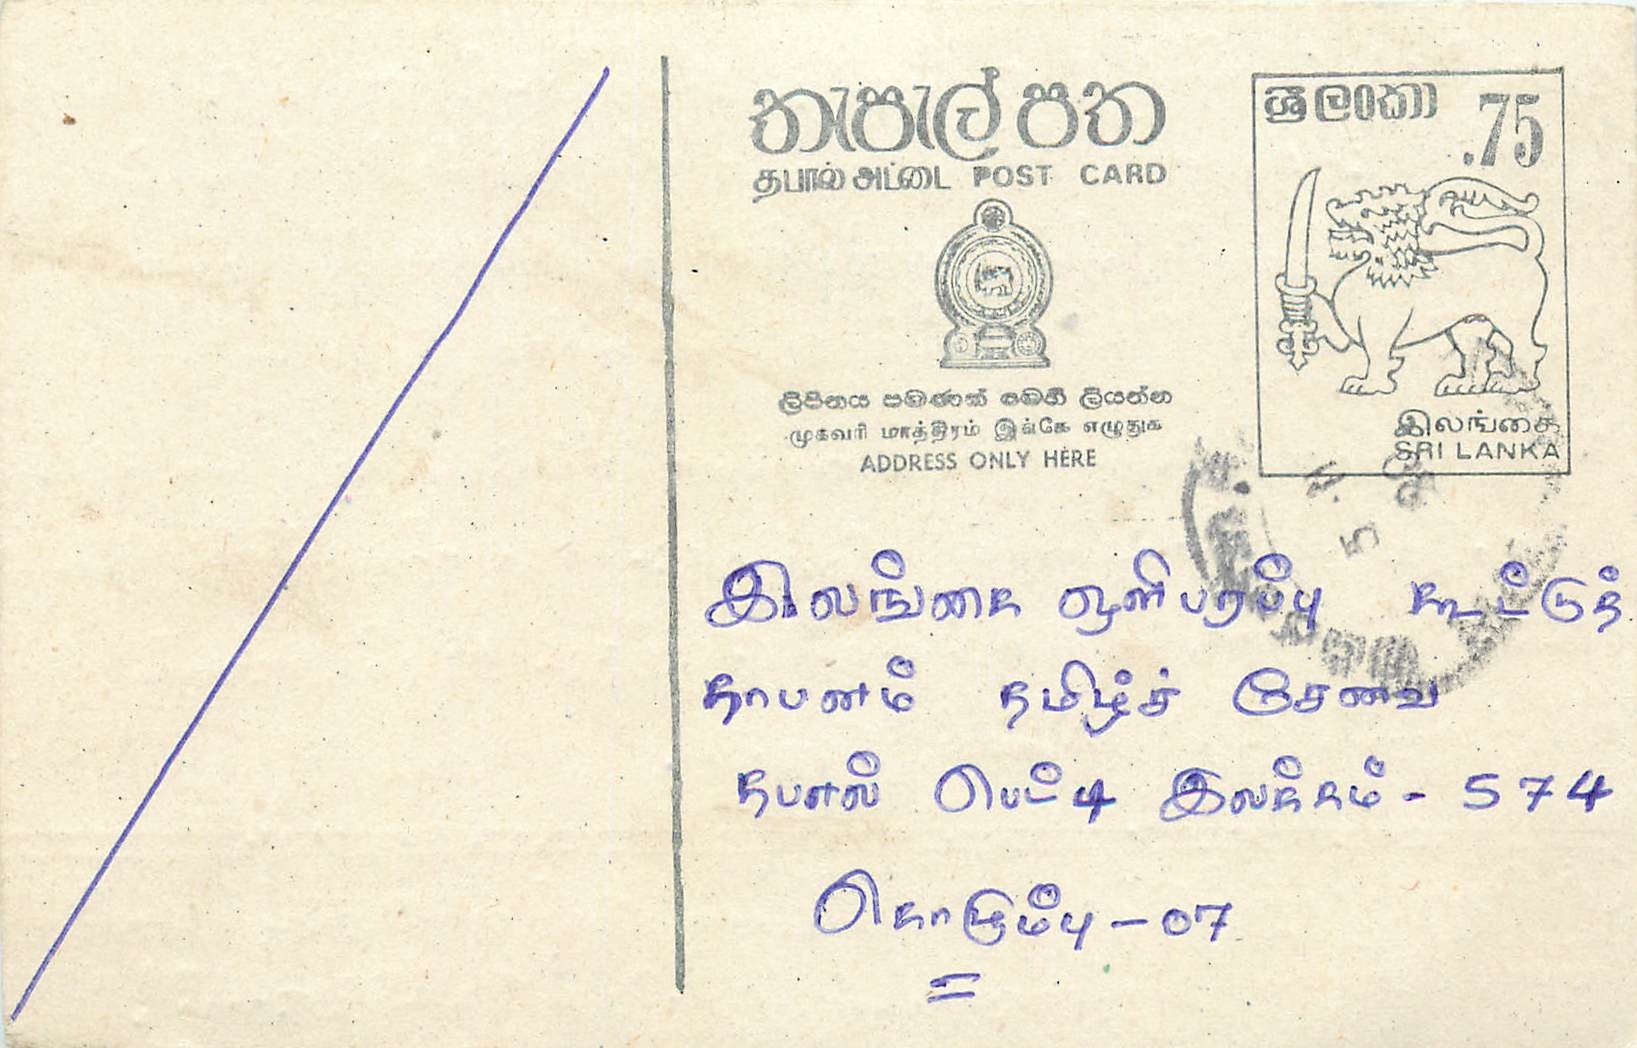 තැපැල් පත
தபால் அட்டை POST CARD
ලිපිනය පමණක් මෙහි ලියන්න
முகவரி மாத்திரம் இங்கே எழுதுக
ADDRESS ONLY HERE
ශ්‍රී ලංකා
.75
இலங்கை
SRI LANKA
இலங்கை ஒளிபரப்பு கூட்டுத்
தாபனம் தமிழ்ச் சேவை
தபால் பெட்டி இலக்கம் - 574
கொழும்பு - 07